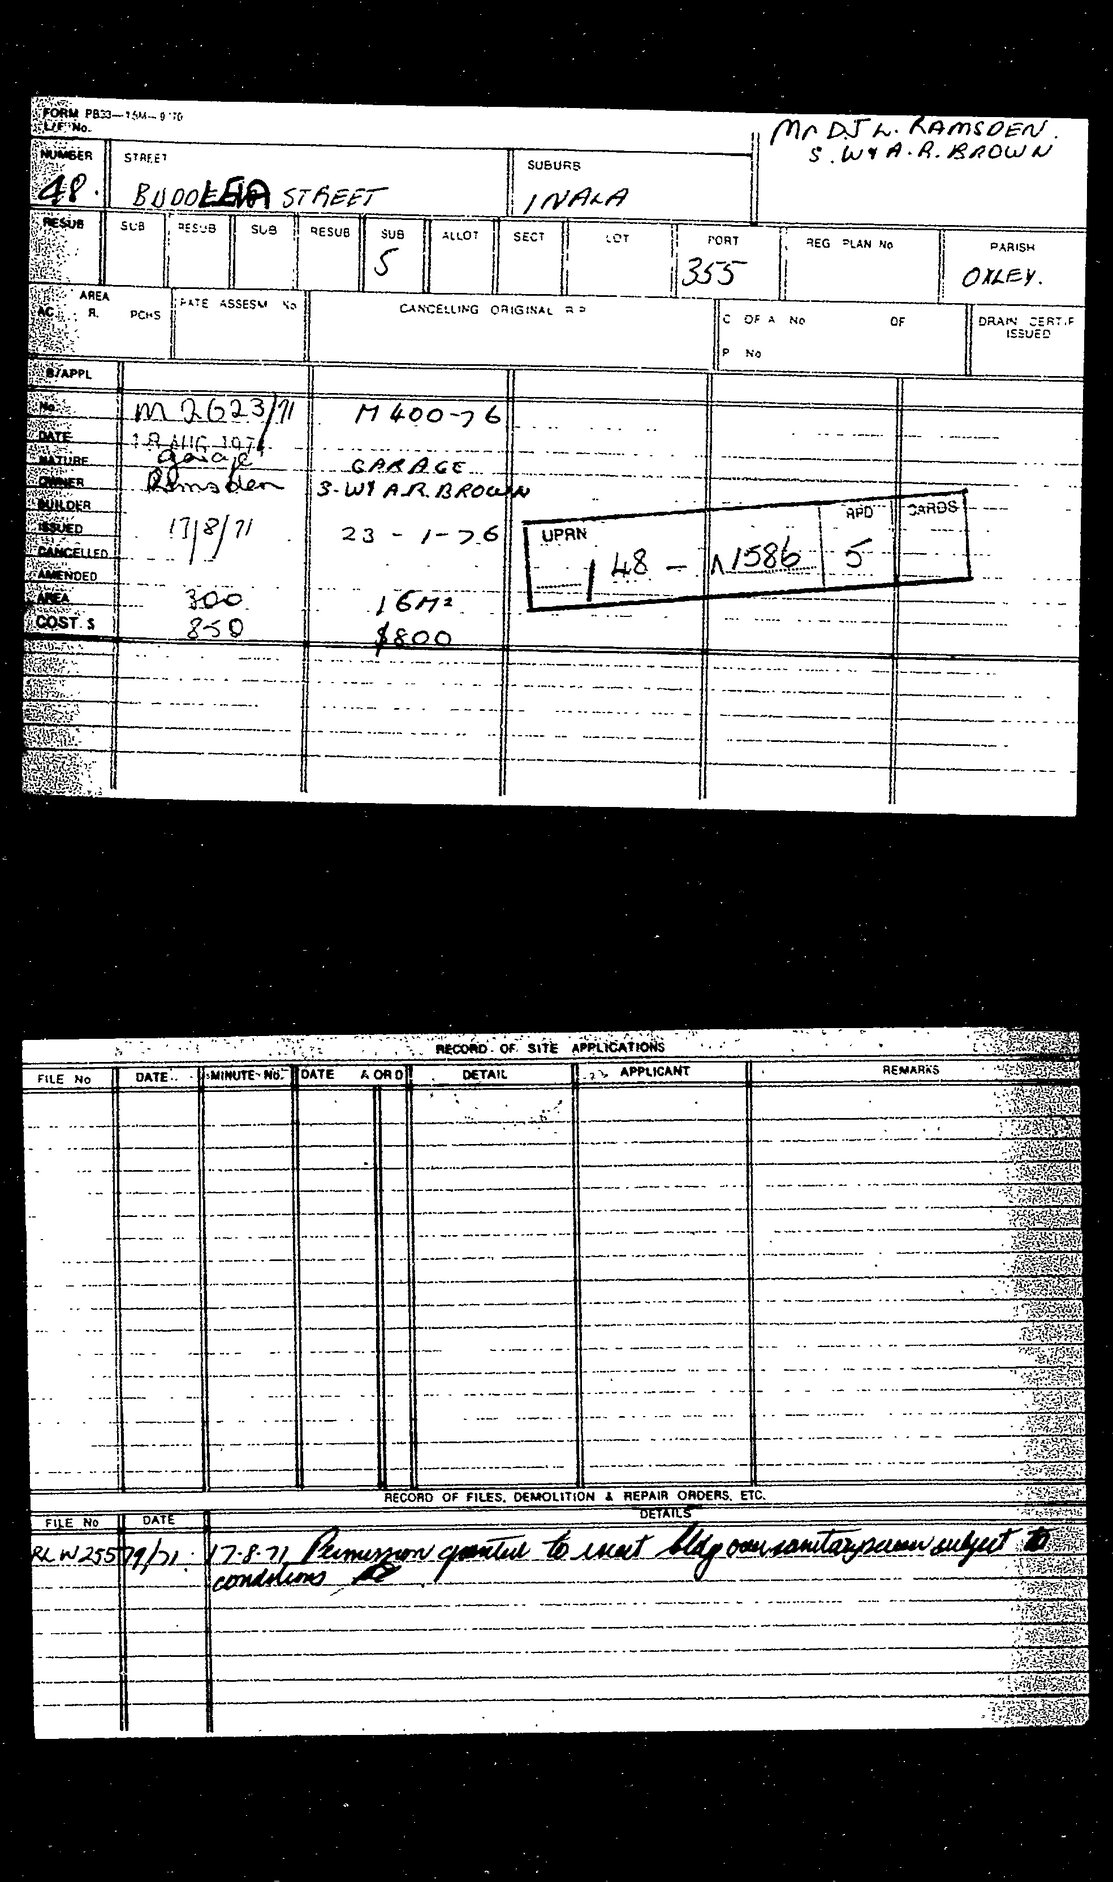 FORM PB33—15M—9/70
L/F No.
Mr D.J L. RAMSDEN.
S. W & A. R. BROWN
NUMBER STREET SUBURB
48. BUDDLEIA STREET INALA
RESUB SUB RESUB SUB RESUB SUB ALLOT SECT LOT PORT REG PLAN No PARISH
5 355 OXLEY.
AREA RATE ASSESM No CANCELLING ORIGINAL R P C OF A No OF DRAIN CERTIF ISSUED
AC. R. PCHS
P No
B/APPL
No. M 2623/71 M 400-76
DATE 18 AUG 1971
NATURE Garage GARAGE
OWNER Ramsden S. W & A.R. BROWN
BUILDER
ISSUED 17/8/71 23-1-76
CANCELLED
AMENDED
AREA 300 16M²
COST $ 850 $800
UPRN RPD CARDS
48 - 1586 5
RECORD OF SITE APPLICATIONS
FILE No DATE MINUTE No. DATE A OR D DETAIL APPLICANT REMARKS
RECORD OF FILES, DEMOLITION & REPAIR ORDERS, ETC.
FILE No DATE DETAILS
RLW 25579/71. 17-8-71 Permission granted to erect bldg over sanitary sewer subject to
conditions